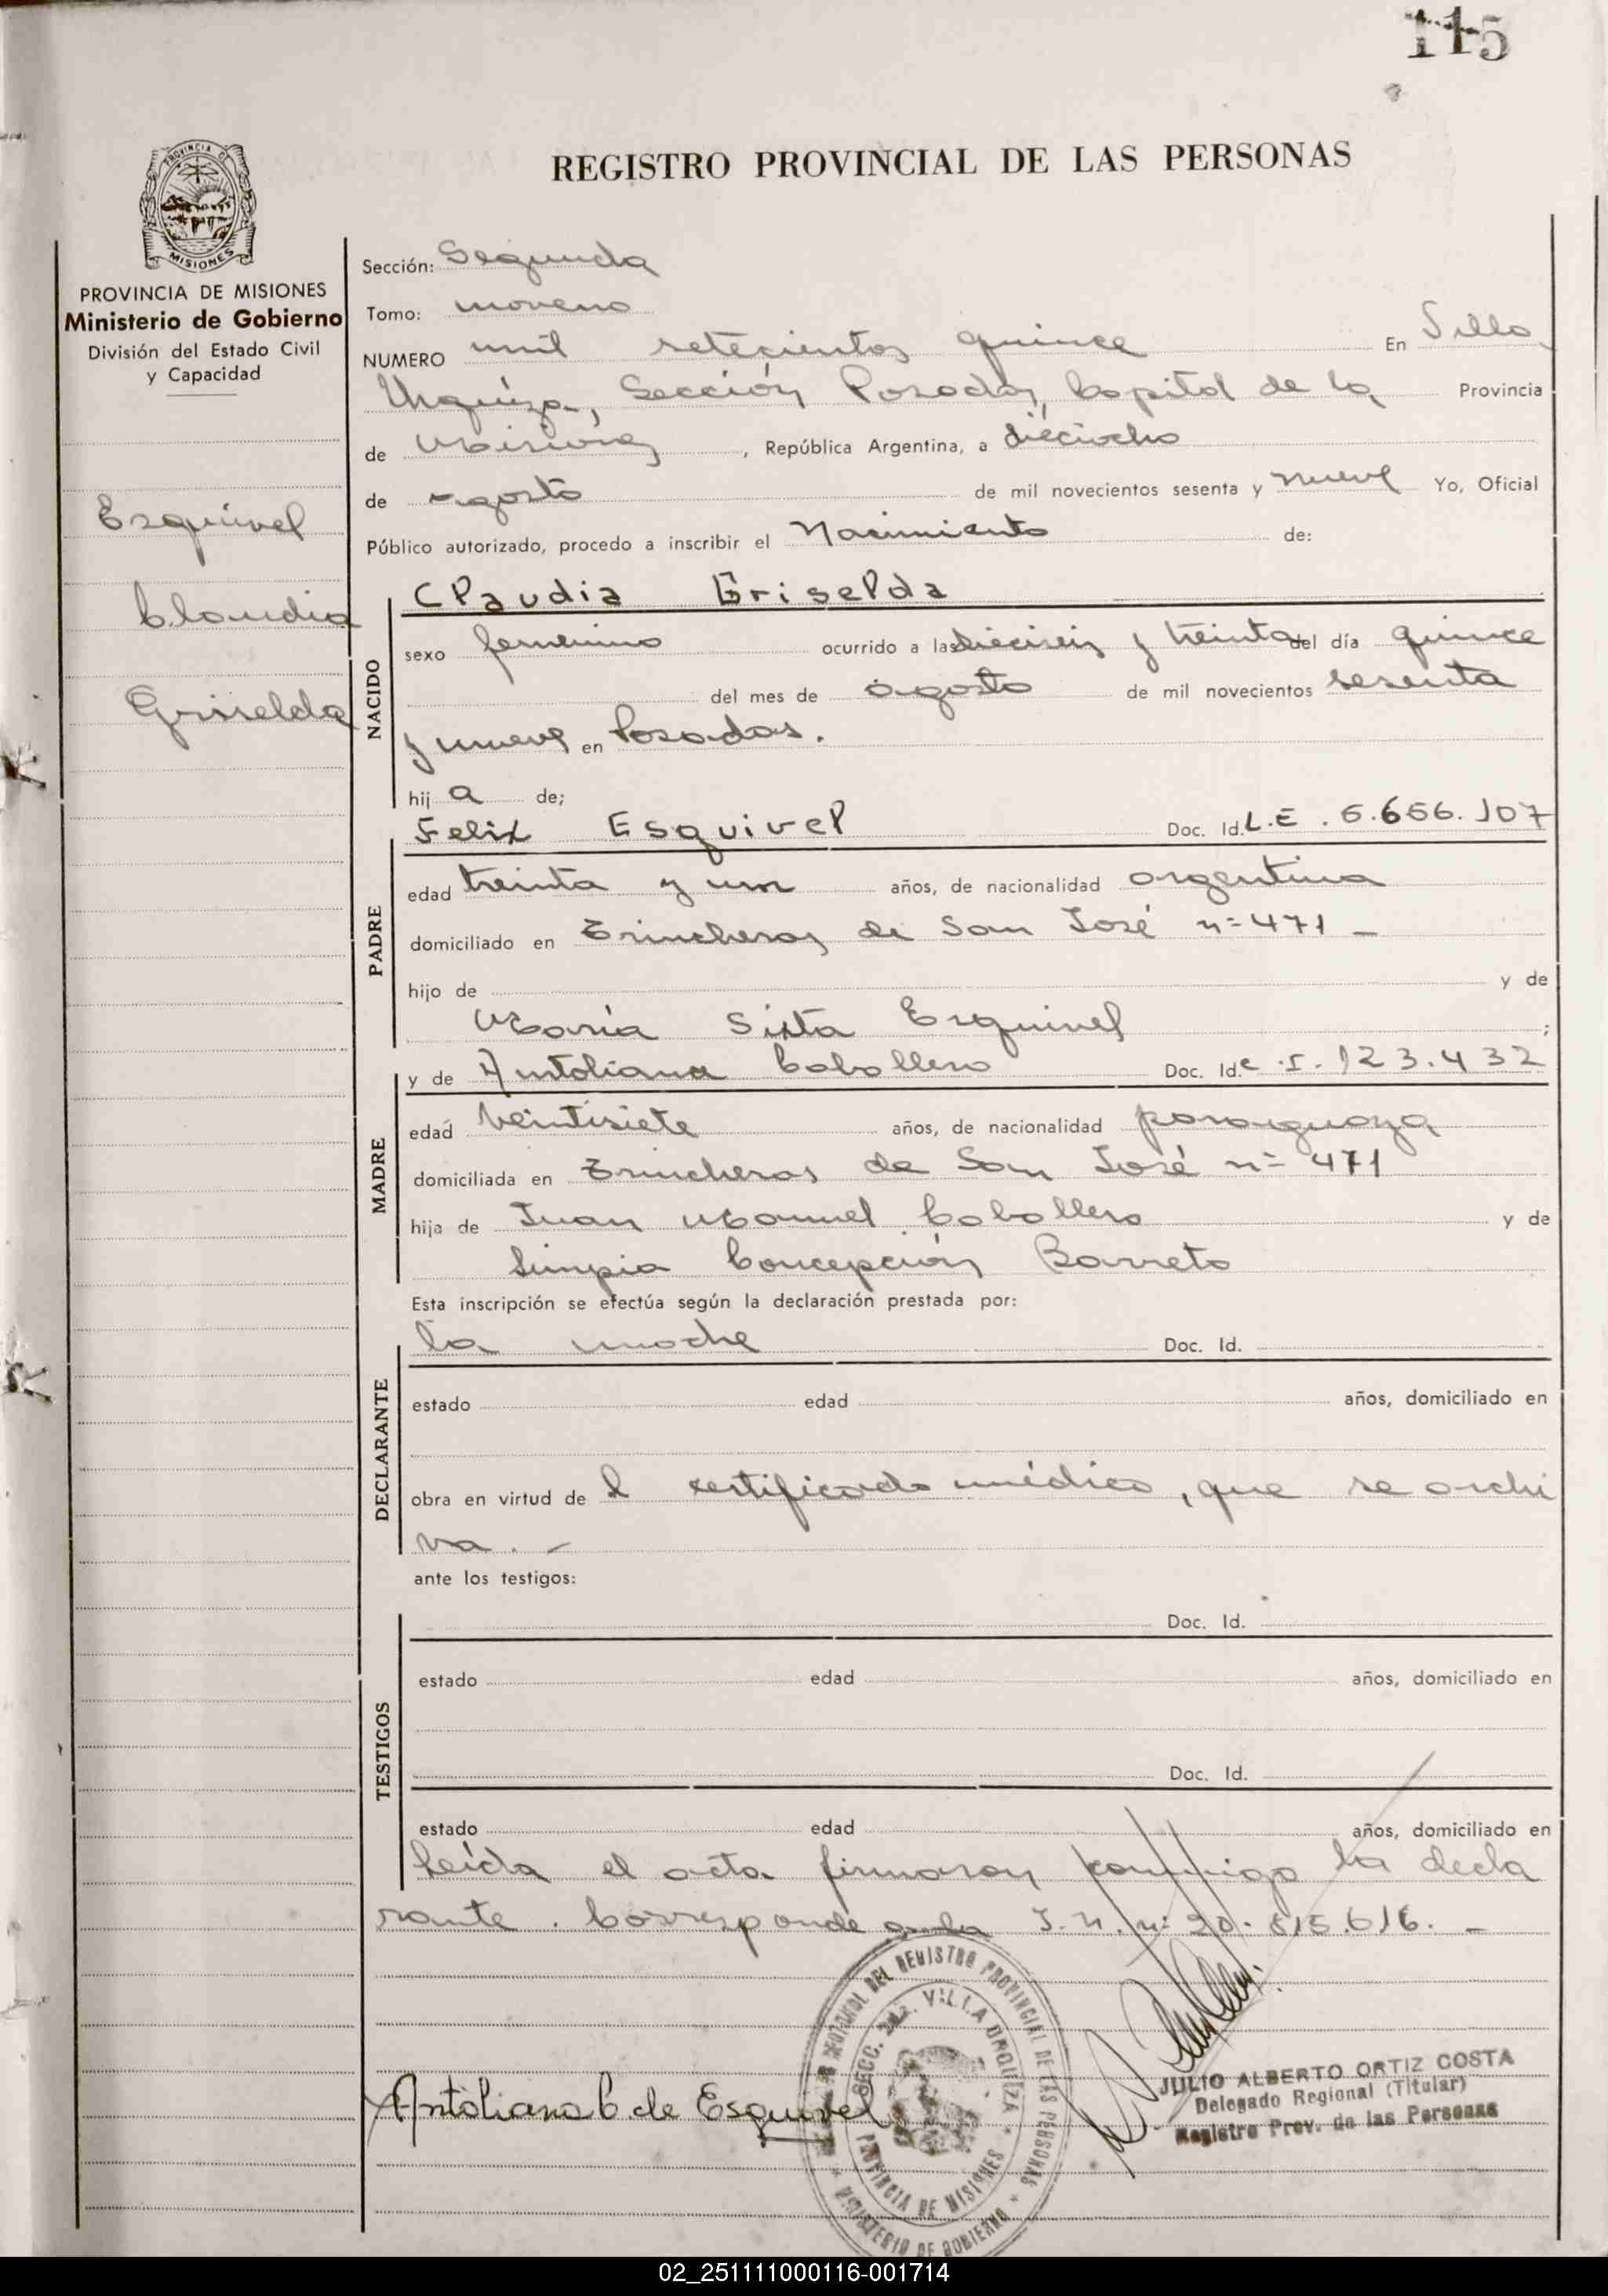 115
REGISTRO PROVINCIAL DE LAS PERSONAS
PROVINCIA DE MISIONES
Ministerio de Gobierno
División del Estado Civil
y Capacidad
Esquivel
Claudia
Griselda
Sección: Segunda
Tomo: noveno
NUMERO mil setecientos quince En Villa
Urquiza, Sección Posadas, Capital de la Provincia
de Misiones, República Argentina, a dieciocho
de agosto de mil novecientos sesenta y nueve Yo, Oficial
Público autorizado, procedo a inscribir el Nacimiento de:
NACIDO
Claudia Griselda
sexo femenino ocurrido a las dieciseis y treinta del día quince
del mes de agosto de mil novecientos sesenta
y nueve en Posadas.
hija de;
PADRE
Felix Esquivel Doc. Id. L.E. 5.656.107
edad treinta y un años, de nacionalidad argentina
domiciliado en Trincheras de San José n= 471 _
hijo de y de
María Sixta Esquivel ;
MADRE
y de Antoliana Caballero Doc. Id. C.I. 123.432
edad veintisiete años, de nacionalidad paraguaya
domiciliada en Trincheras de San José n= 471
hija de Juan Manuel Caballero y de
Limpia Concepción Barreto
Esta inscripción se efectúa según la declaración prestada por:
DECLARANTE
la madre Doc. Id.
estado edad años, domiciliado en
obra en virtud de l certificado médico, que se archi
va. -
ante los testigos:
TESTIGOS
Doc. Id.
estado edad años, domiciliado en
Doc. Id.
estado edad años, domiciliado en
Leída el acta firmaron conmigo la decla
rante. Corresponde a la I.N. n= 20.815.616. _
Antoliana C de Esquivel
SECC. 2da. VILLA URQUIZA
PROVINCIA DE MISIONES
DEL REGISTRO PROVINCIAL DE LAS PERSONAS
MINISTERIO DE GOBIERNO
JULIO ALBERTO ORTIZ COSTA
Delegado Regional (Titular)
Registro Prov. de las Personas
02_251111000116-001714